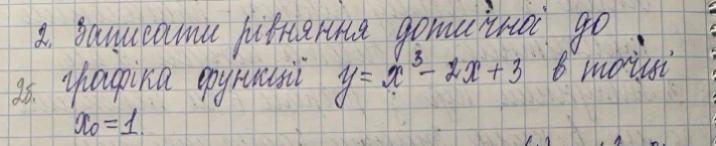 2. Записати рівняння дотичної до
2б. графіка функції y = x³ - 2x + 3 в точці
x₀ = 1.